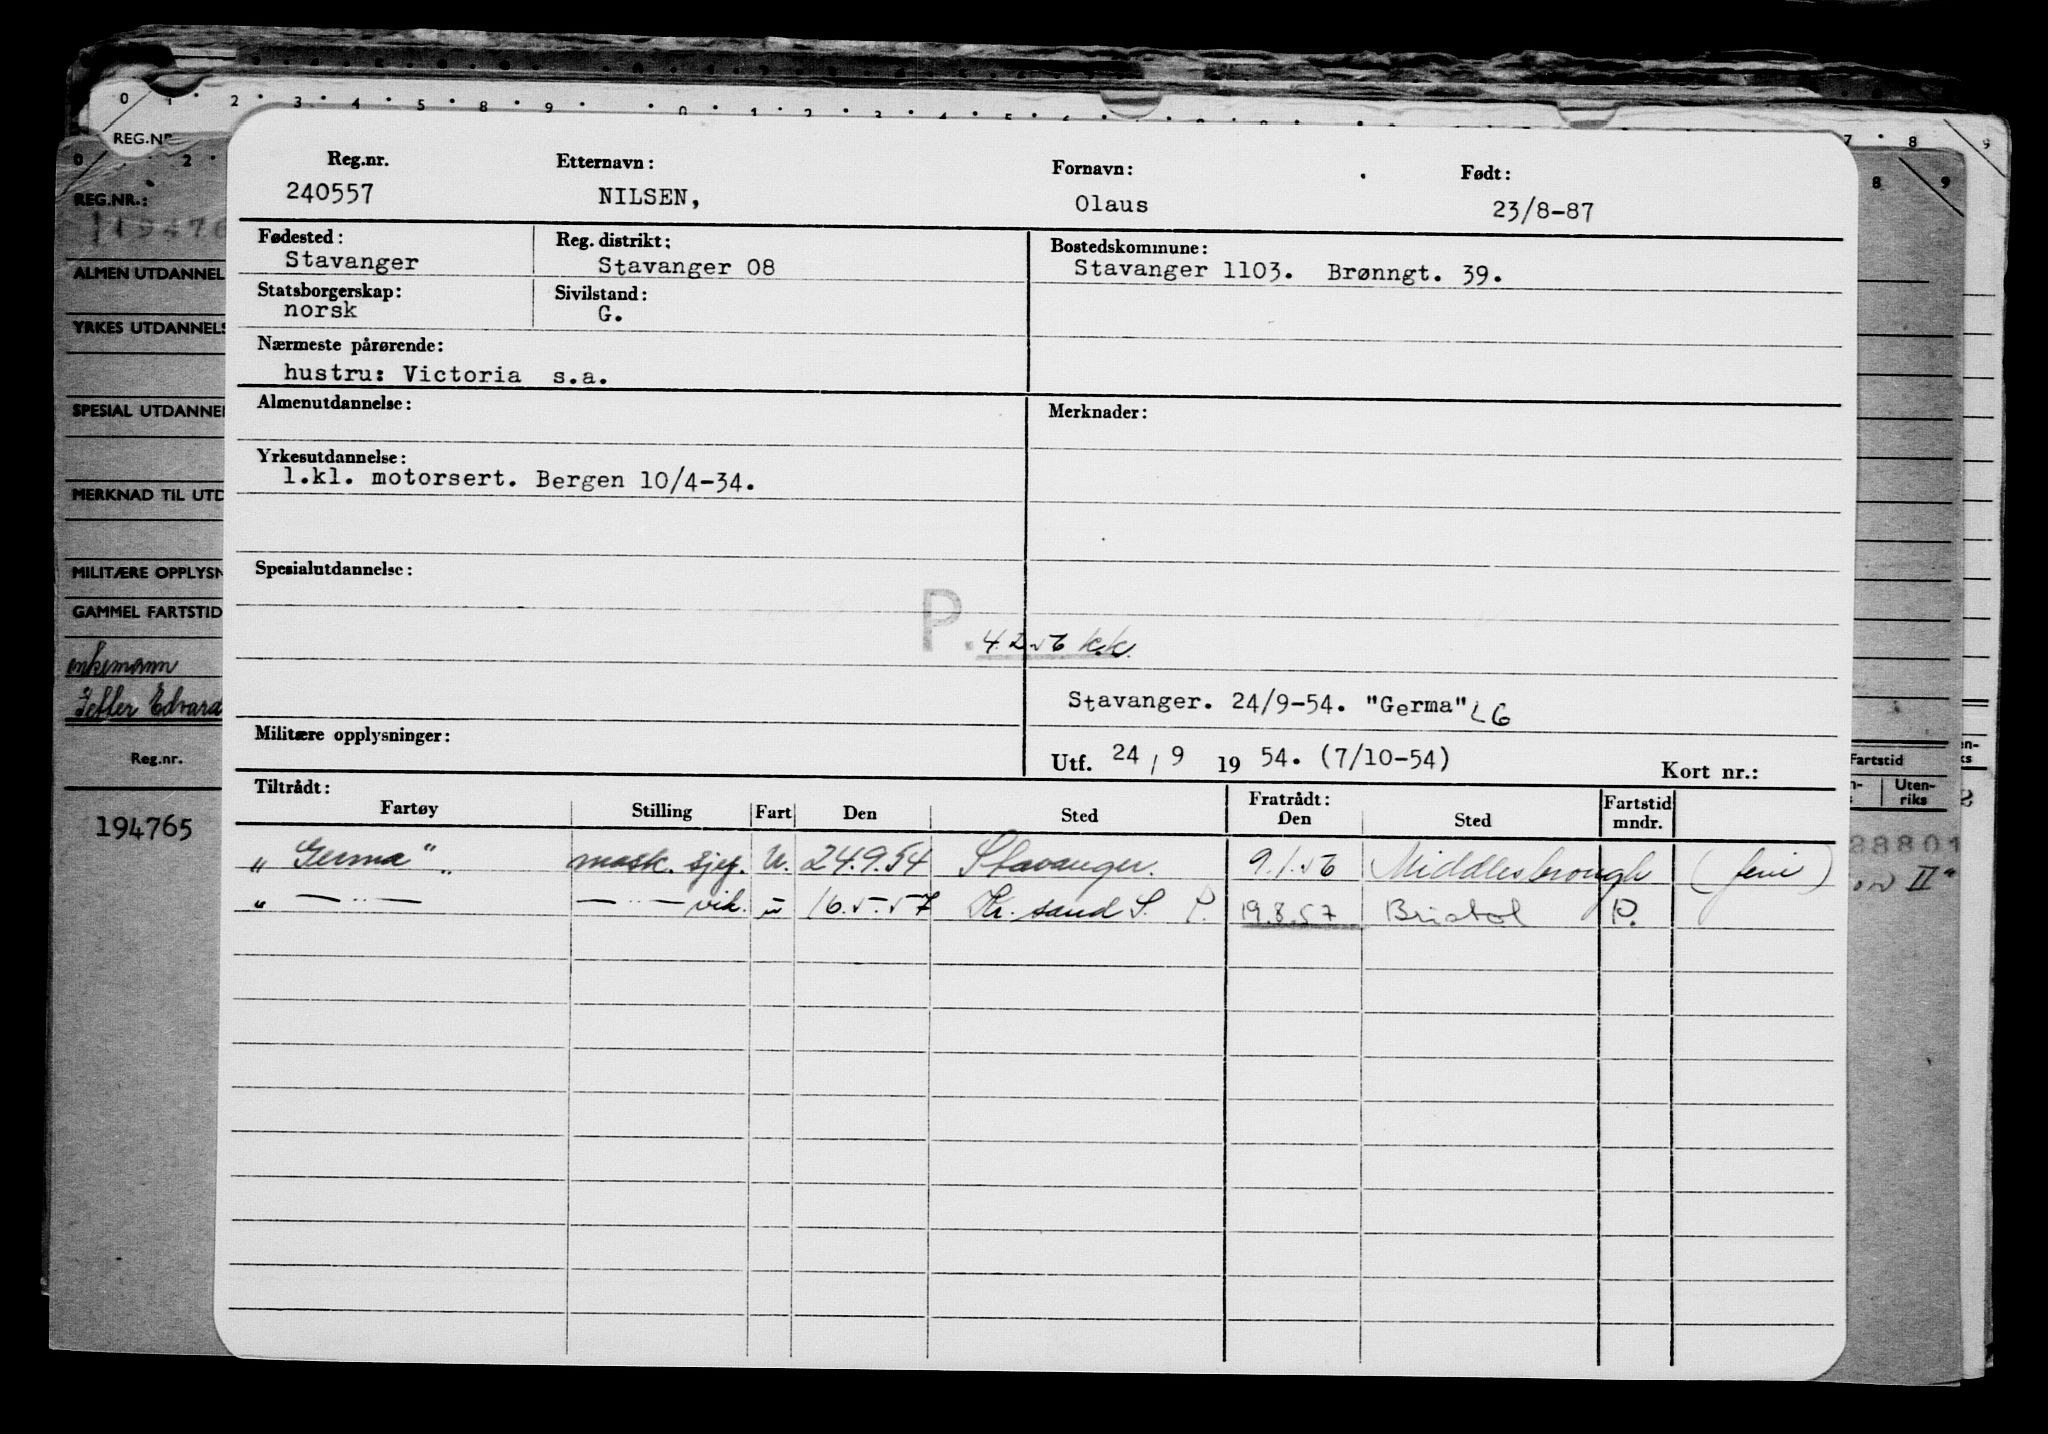 0 1 2 3 4 5 6 8 9 0 1 2 3 4 5 6 7 8 9
REG.NR
0 2 8 9
REG.NR.:
ALMEN UTDANNEL
YRKES UTDANNELS
SPESIAL UTDANNEL
MERKNAD TIL UTD
MILITÆRE OPPLYSN
GAMMEL FARTSTID
enkemann
Edvard
Reg.nr.
194765
Reg.nr. Etternavn: Fornavn: Født:
240557 NILSEN, Olaus 23/8-87
Fødested: Reg. distrikt: Bostedskommune:
Stavanger Stavanger 08 Stavanger 1103. Brønngt. 39.
Statsborgerskap: Sivilstand:
norsk G.
Nærmeste pårørende:
hustru: Victoria s.a.
Almenutdannelse: Merknader:
Yrkesutdannelse:
1.kl. motorsert. Bergen 10/4-34.
Spesialutdannelse:
P. 4.2.56 k.k.
Stavanger. 24/9-54. "Germa" LG
Militære opplysninger:
Utf. 24 / 9 19 54. (7/10-54) Kort nr.:
Tiltrådt: Fratrådt: Fartstid
Fartøy Stilling Fart Den Sted Den Sted mndr.
„ Germa " „ mask. sjef. U. 24.9.54 Stavanger. 9.1.56 Middlesbrough (ferie)
„ — " — — " — vik. u 16.5.57 Kr. sand S. P. 19.8.57 Bristol P.
Fartstid
Uten-
riks
28801
II"